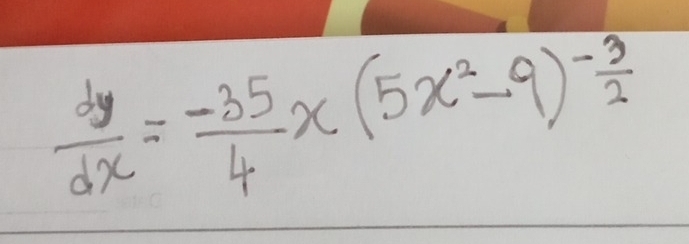 dy/dx = -35/4 x (5x² - 9)^(-3/2)